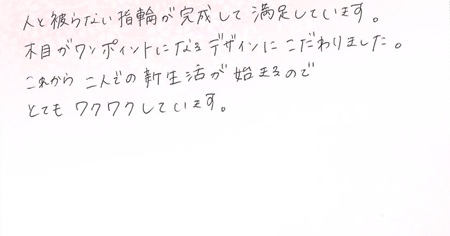 人と被らない指輪が完成して満足しています。
木目がワンポイントになるデザインにこだわりました。
これから二人での新生活が始まるので
とてもワクワクしています。